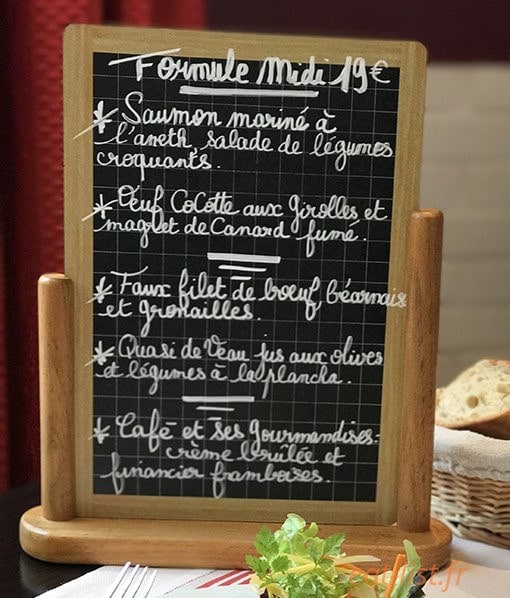 Formule Midi 19€
* Saumon mariné à
l'aneth, salade de légumes
croquants.
* Œuf Cocotte aux girolles et
magret de Canard fumé.
* Faux filet de boeuf, béarnaise
et grenailles.
* Quasi de Veau jus aux olives
et légumes à la plancha.
* Café et ses gourmandises:
crème brûlée et
financier framboises.